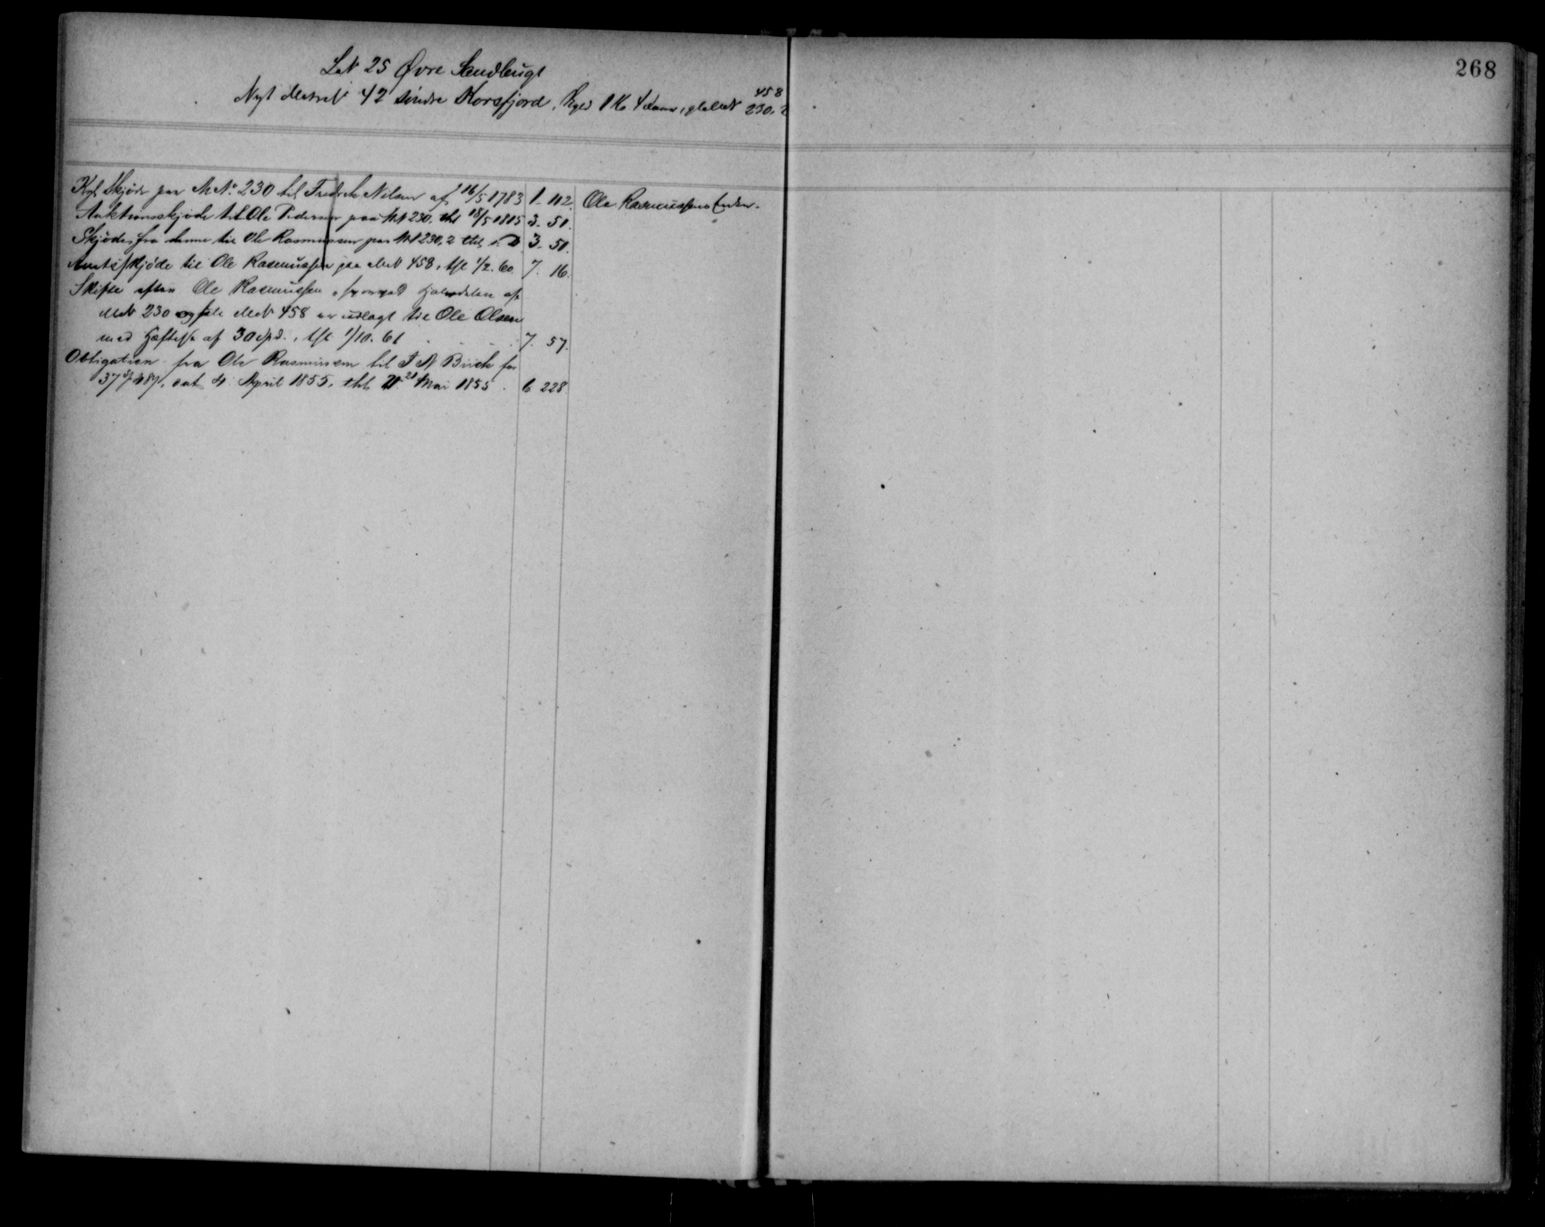 268
LNr 25 Øvre Sandbugt
Nyt Matr Nr 42 Søndre Korsfjord, Skyld 1 Ko 4 Lam, gl MNr 458
230. 2
Kgl Skjøde paa M No 230 til Fredrik Nilsen af 16/5 1783 1. 112. Ole Rasmussens Enke.
Auktionsskjøde til Ole Pedersen paa Nr 230, thl 18/5 1805 3. 51.
Skjøde fra denne til Ole Rasmussen paa Nr 230, 2 thl s. D 3. 51.
Amtsskjøde til Ole Rasmussen paa MNr 458, tlt 1/2. 60. 7. 16.
Skifte efter Ole Rasmussen, hvorved Halvdelen af
MNr 230 og hele MNr 458 er udlagt til Ole Olsen
med Hæftelse af 30 Spd., tlt 1/10. 61 7. 57.
Obligation fra Ole Rasmussen til J A Birch for
dat 4 April 1855, thl 21 Mai 1855. 6 228